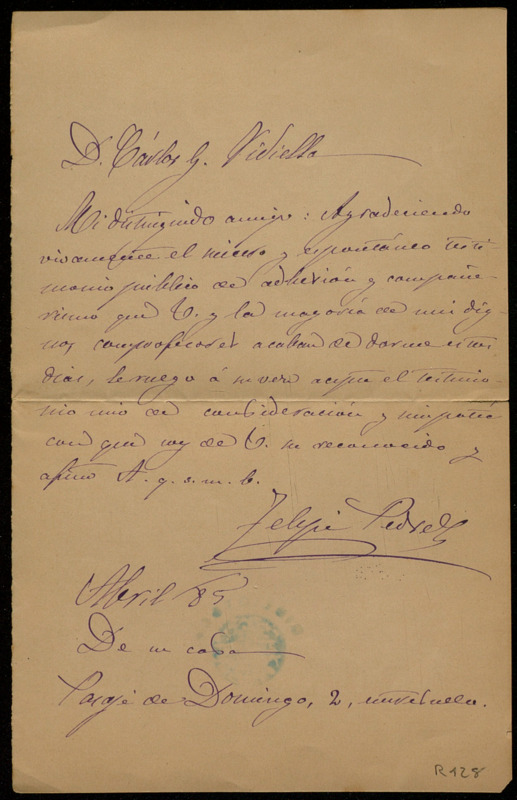 D. Cárlos G. Vidiella
Mi distinguido amigo: Agradeciendo
vivamente el sincero y espontáneo testi
monio público de adhesión y compañe-
rismo que V. y la mayoría de mis dig-
nos comprofesores acaban de darme estos
dias, le ruego á su vez acepte el testimo-
nio mio de consideración y simpatía
con que soy de V. su reconocido y
afmo A. q. s. m. b.
Felipe Pedrell
Abril 85
De su casa
Pasaje de Domingo, 2, entresuelo.
R 428